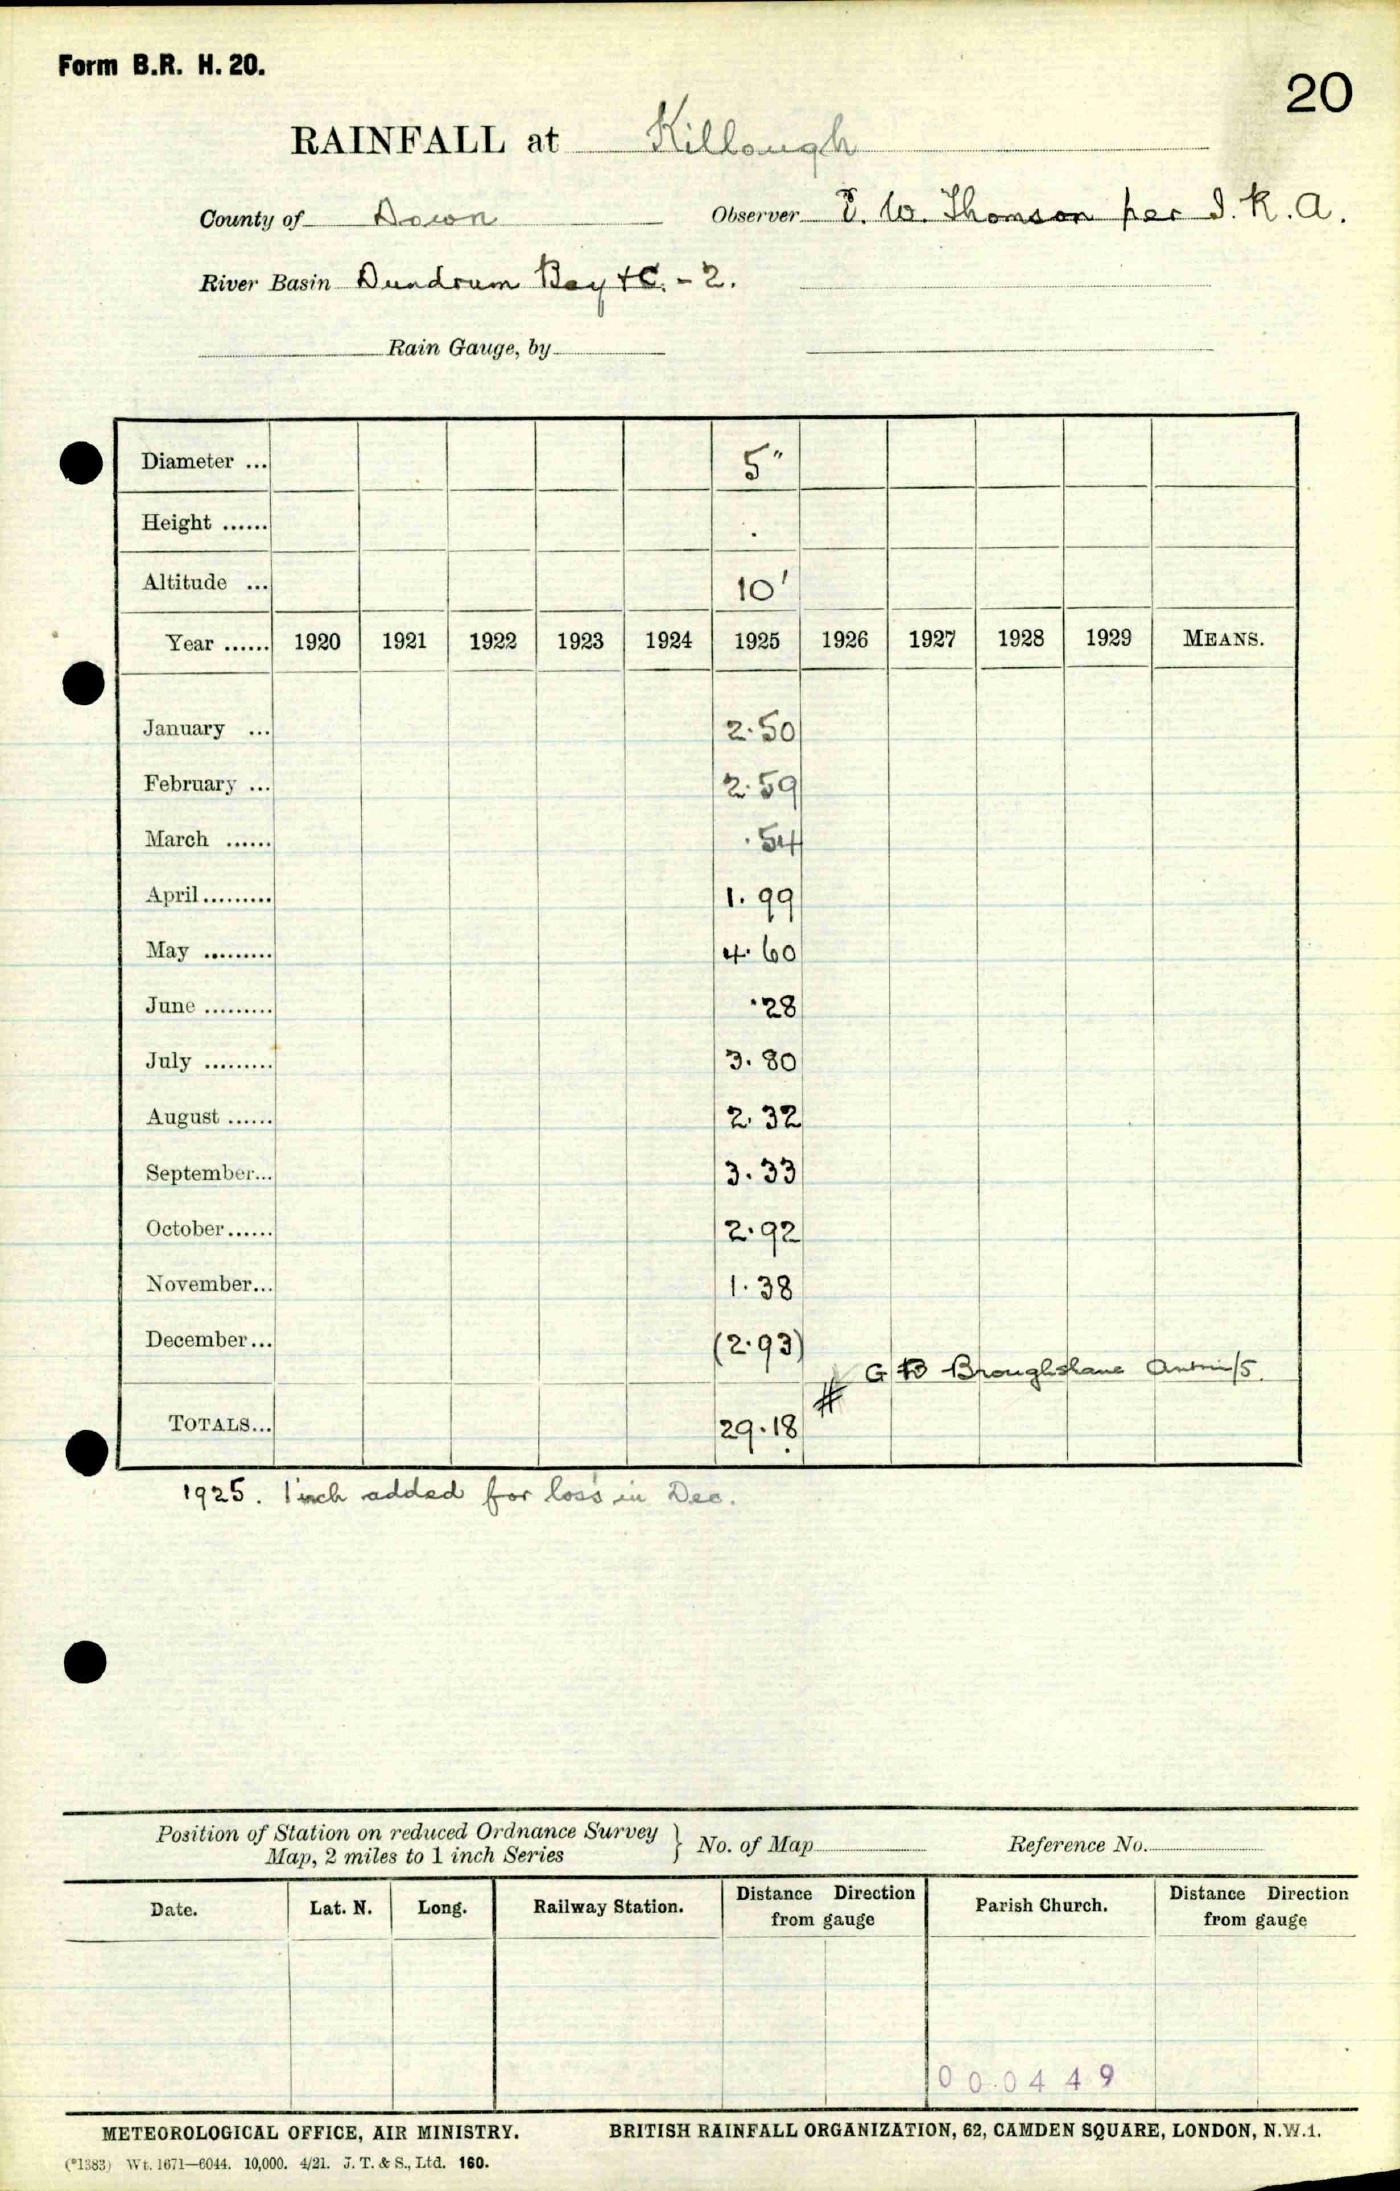 Form B.R. H. 20.
20
RAINFALL at Killough
County of Down Observer E. W. Thomson per I. R. A.
River Basin Dundrum Bay &C. - 2.
Rain Gauge, by
Diameter ... 5"
Height ......
Altitude ... 10'
Year ...... 1920 1921 1922 1923 1924 1925 1926 1927 1928 1929 MEANS.
January ... 2.50
February ... 2.59
March ...... .54
April ......... 1.99
May ......... 4.60
June ......... .28
July ......... 3.80
August ...... 2.32
September... 3.33
October ...... 2.92
November... 1.38
December... (2.93)
# G Broughshane Antrim/5.
TOTALS... 29.18
1925. 1 inch added for loss in Dec.
Position of Station on reduced Ordnance Survey
Map, 2 miles to 1 inch Series } No. of Map Reference No.
Date. Lat. N. Long. Railway Station. Distance Direction from gauge Parish Church. Distance Direction from gauge
000449
METEOROLOGICAL OFFICE, AIR MINISTRY. BRITISH RAINFALL ORGANIZATION, 62, CAMDEN SQUARE, LONDON, N.W.1.
(*1383) Wt. 1671—6044. 10,000. 4/21. J. T. & S., Ltd. 160.